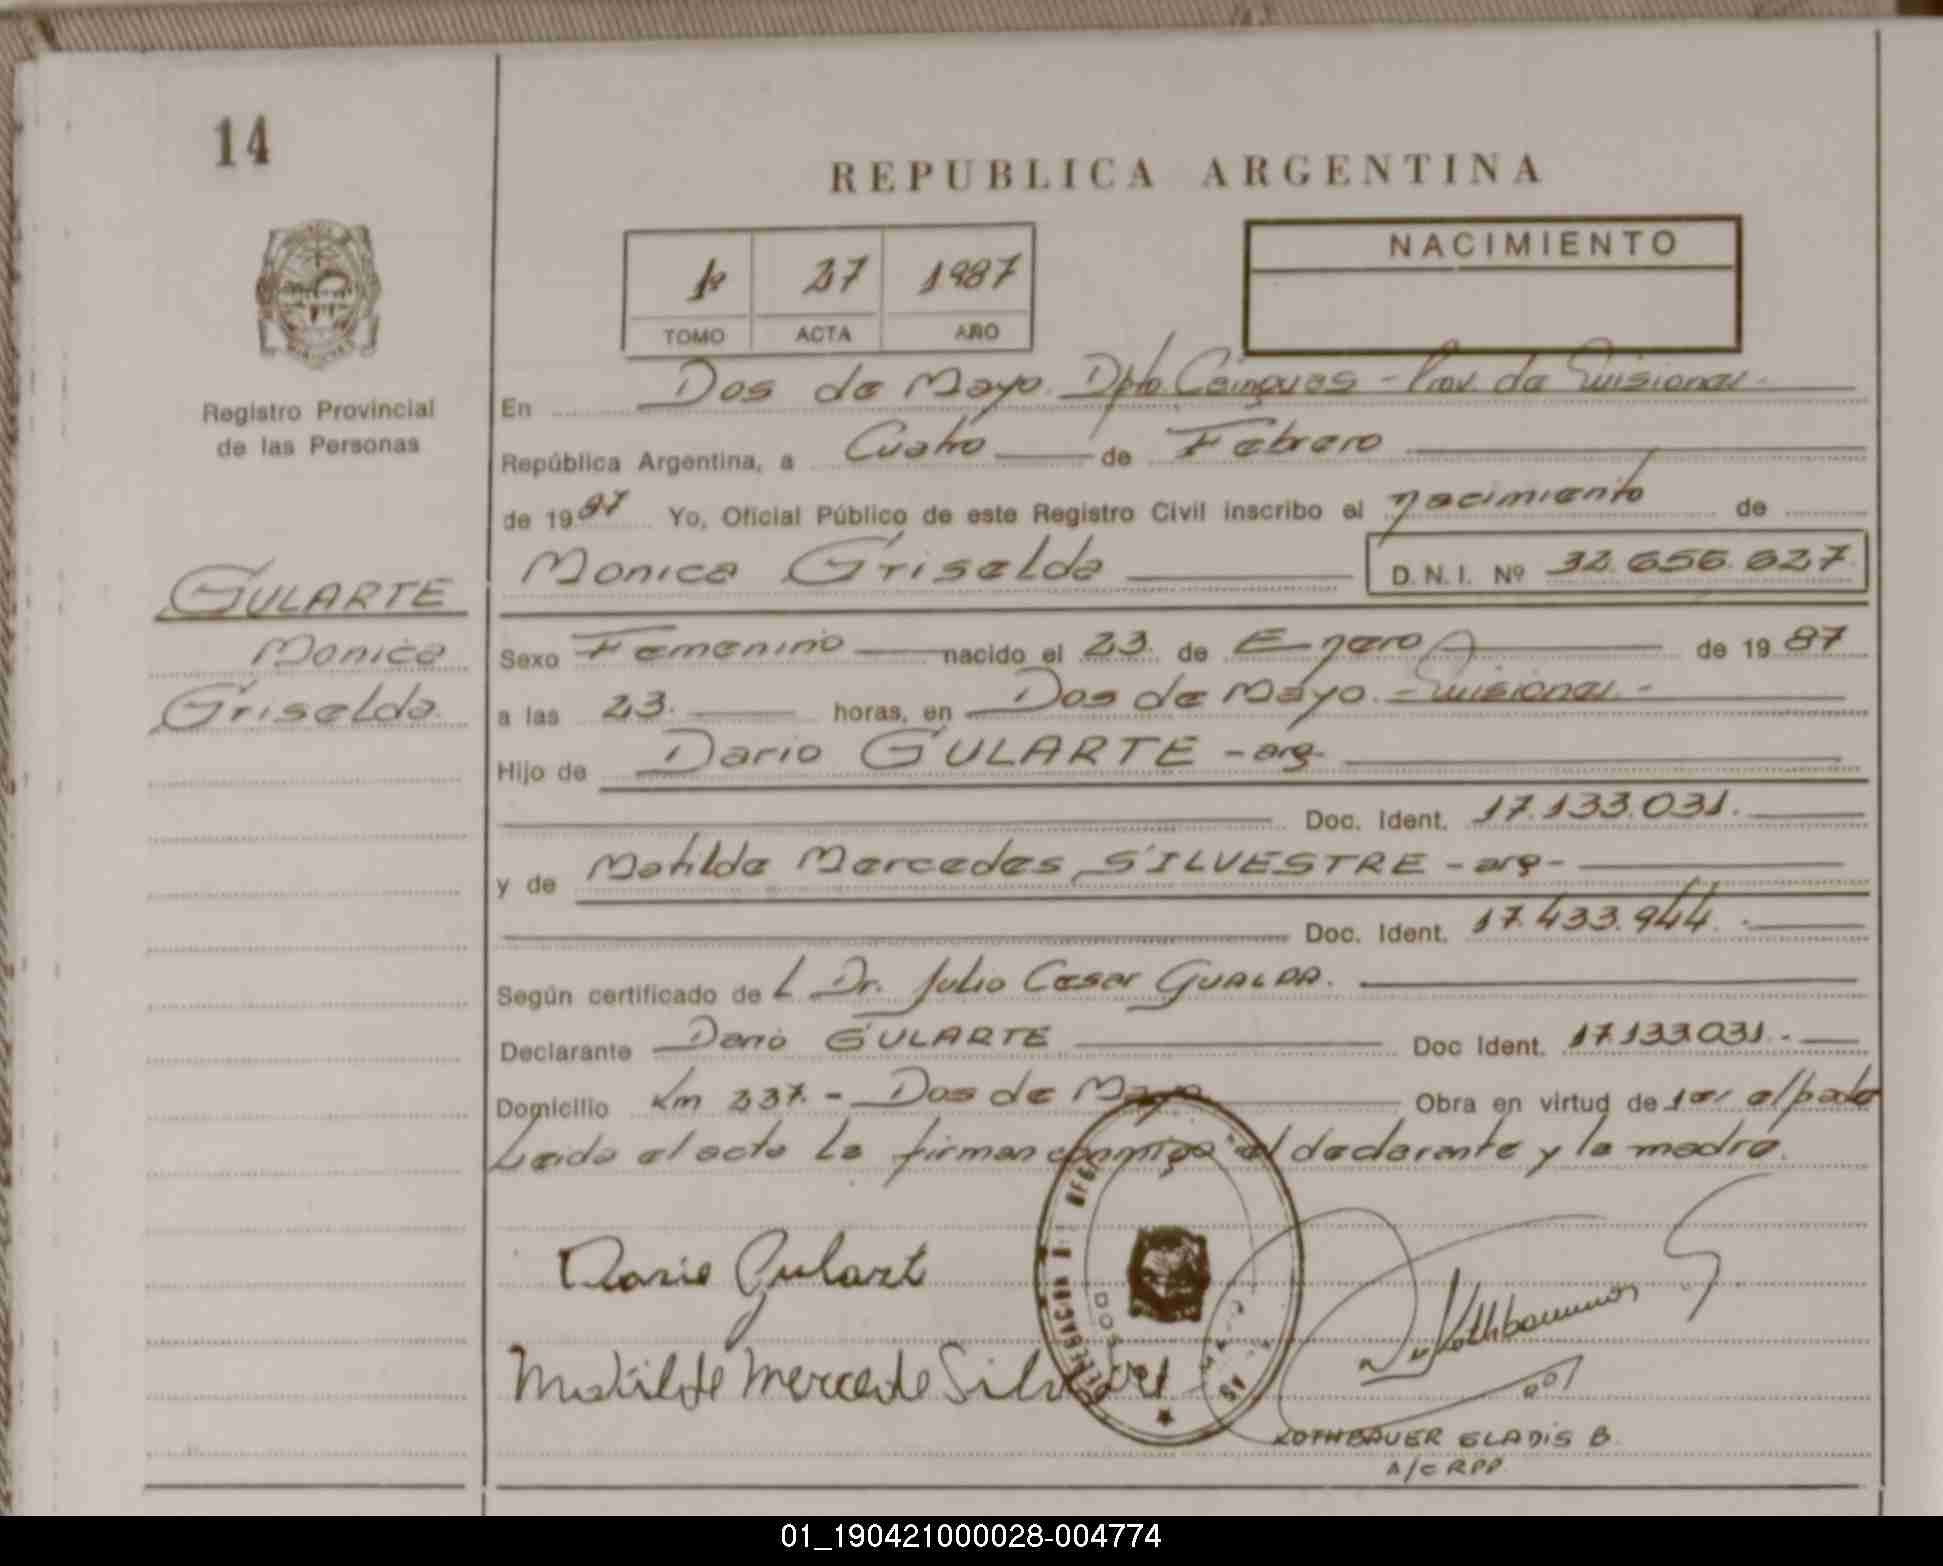 14
REPUBLICA ARGENTINA
1º 27 1987
TOMO ACTA AÑO
NACIMIENTO
Registro Provincial
de las Personas
En Dos de Mayo. Dpto. Cainguas - Prov. de Misiones -
República Argentina, a Cuatro de Febrero
de 1987 Yo, Oficial Público de este Registro Civil inscribo el nacimiento de
Monica Griselda D.N.I. Nº 32.656.627
GULARTE
Monica
Griselda
Sexo Femenino nacido el 23 de Enero de 1987
a las 23. horas, en Dos de Mayo - Misiones -
Hijo de Dario GULARTE - arg-
Doc. Ident. 17.133.031.
y de Matilde Mercedes SILVESTRE - arg-
Doc. Ident. 17.433.944.
Según certificado de L Dr. Julio Cesar GUALDA.
Declarante Dario GULARTE Doc Ident. 17.133.031.-
Domicilio Km 237. - Dos de Mayo Obra en virtud de 1er el padre
Leida el acta La firman conmigo el declarante y la madre.
Dario Gulart
Matilde Mercede Silvest
DOS
ROTHBAUER GLADIS B.
A/C RPP.
01_190421000028-004774